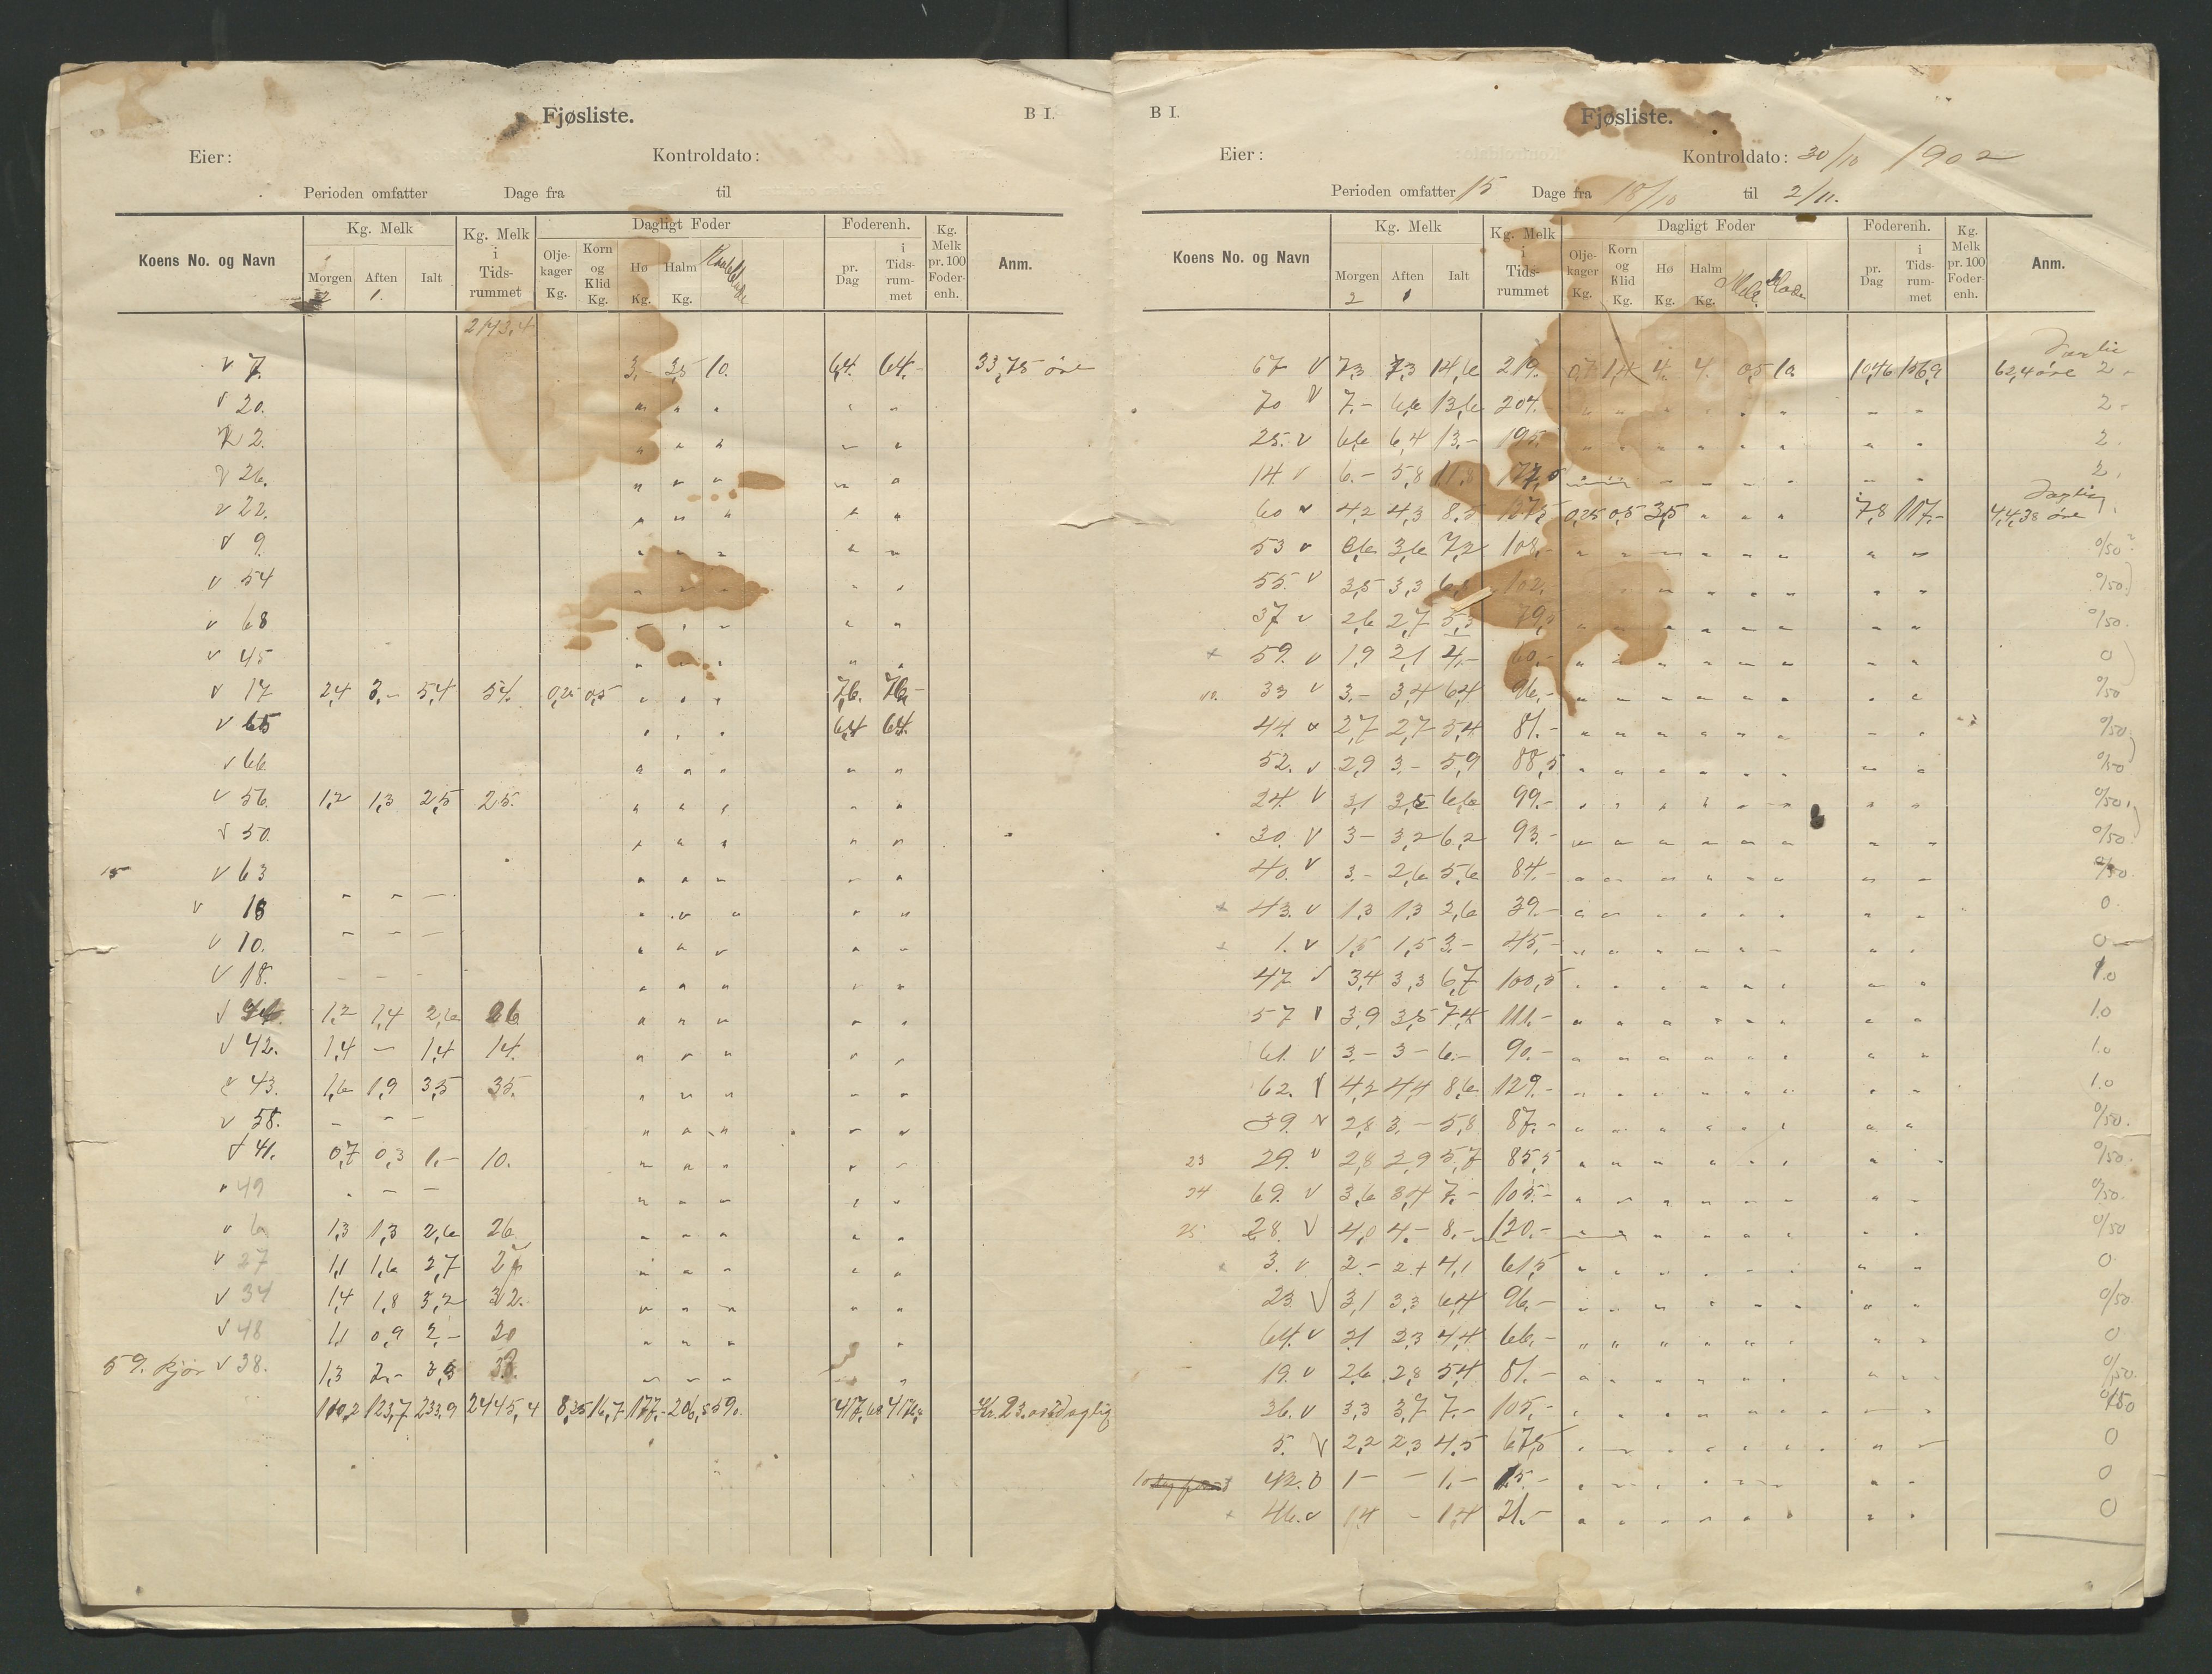 Fjøsliste. B I.
Eier: Kontroldato:
Perioden omfatter Dage fra til
Koens No. og Navn Kg. Melk Morgen Aften Ialt Kg. Melk i Tids- rummet Dagligt Foder Olje- kager Kg. Korn og Klid Kg. Hø Kg. Halm Kg. Foderenh. pr. Dag i Tids- rum- met Kg. Melk pr. 100 Foder- enh. Anm.
2 1.
2173,4
v 7. 3. 3,5 10. 6,4. 64.- 33,75 øre
v 20. " " " " "
2. " " " " "
v 26. " " " " "
v 22. " " " " "
v 9. " " " " "
v 54 " " " " "
v 68 " " " " "
v 45 " " " " "
v 17 2,4 3.- 5,4 54. 0,25 0,5 " " " 7,6. 76.-
v 65 " " " 6,4 64.
v 66. " " " " "
v 56. 1,2 1,3 2,5 25. " " " " "
v 50. " " " " "
15 v 63 " " " " "
v 13 - - - " " " " "
v 10. - - - " " " " "
v 18. - - - " " " " "
v 1,2 1,4 2,6 26 " " " " "
v 42. 1,4 - 1,4 14. " " " " "
v 43. 1,6 1,9 3,5 35. " " " " "
v 58. - - - " " " " "
v 41. 0,7 0,3 1.- 10. " " " " "
v 49 - - - " " " " "
v 6 1,3 1,3 2,6 26 " " " " "
v 27 1,1 1,6 2,7 27 " " " " "
v 34 1,4 1,8 3,2 32. " " " " "
v 48 1,1 0,9 2,- 20 " " " "
59. kjør v 38. 1,3 2.- 3,3 33. " " " "
110,2 123,7 233,9 2445,4 8,25 16,7 177.- 206,5 590. 417,60 4176,0 Kr. 23. daglig
B I. Fjøsliste.
Eier: Kontroldato: 30/10 1902
Perioden omfatter 15 Dage fra 18/10 til 2/11.
Koens No. og Navn Kg. Melk Morgen Aften Ialt Kg. Melk i Tids- rummet Dagligt Foder Olje- kager Kg. Korn og Klid Kg. Hø Kg. Halm Kg. Foderenh. pr. Dag i Tids- rum- met Kg. Melk pr. 100 Foder- enh. Anm.
2 1
Daglig
67 v 7,3 7,3 14,6 219. 0,7 1,4 4. 4. 0,5 10. 10,46 156,9 62,4 øre 2 -
70 v 7.- 6,6 13,6 204. " " " " " " " " 2 -
25. v 6,6 6,4 13.- 195. " " " " " " " " 2.
14. v 6.- 5,8 11,8 177,0 " " " " " " " " 2.
Daglig
60 v 4,2 4,3 8,5 127,5 0,25 0,5 3,5 " " " 7,8 117.- 44,38 øre 1.
53 v 3,6 3,6 7,2 108,- " " " " " " " " 0/50
55. v 3,5 3,3 6,8 102.- " " " " " " " " 0/50.
37 v 2,6 2,7 5,3 79,5 " " " " " " " " 0/50.
x 59. v 1,9 2,1 4.- 60.- " " " " " " " " 0
10. 33 v 3.- 3,4 6,4 96,- " " " " " " " " 0/50
44. v 2,7 2,7 5,4 81.- " " " " " " " " 0/50
52. v 2,9 3.- 5,9 88,5 " " " " " " " " 0/50
24. v 3,1 3,5 6,6 99.- " " " " " " " " 0/50.
30. v 3- 3,2 6,2 93.- " " " " " " " " 0/50
40. v 3.- 2,6 5,6 84.- " " " " " " " " 0/50.
x 43. v 1,3 1,3 2,6 39.- " " " " " " " " 0.
x 1. v 1,5 1,5 3.- 45,- " " " " " " " " 0
47 v 3,4 3,3 6,7 100,5 " " " " " " " " 1.0
57 v 3,9 3,5 7,4 111.- " " " " " " " " 1.0
61. v 3.- 3- 6.- 90.- " " " " " " " " 1.0
62. v 4,2 4,4 8,6 129.- " " " " " " " " 1.0
39. v 2,8 3.- 5,8 87.- " " " " " " " " 0/50.
23 29. v 2,8 2,9 5,7 85,5 " " " " " " " " 0/50.
24 69. v 3,6 3,4 7.- 105.- " " " " " " " " 0/50.
25 28. v 4,0 4.- 8.- 120.- " " " " " " " " 0/50
x 3. v 2.- 2,1 4,1 61,5 " " " " " " " " 0
23. v 3,1 3,3 6,4 96.- " " " " " " " " 0/50.
64. v 2,1 2,3 4,4 66,- " " " " " " " " 0
19. v 2,6 2,8 5,4 81.- " " " " " " " " 0/50.
36. v 3,3 3,7 7.- 105,- " " " " " " " " 0/50
5. v 2,2 2,3 4,5 67,5 " " " " " " " " 0
10 42. v 1- - 1.- 15.- " " " " " " " " 0
x 46. v 1,4 - 1,4 21.- " " " " " " " " 0